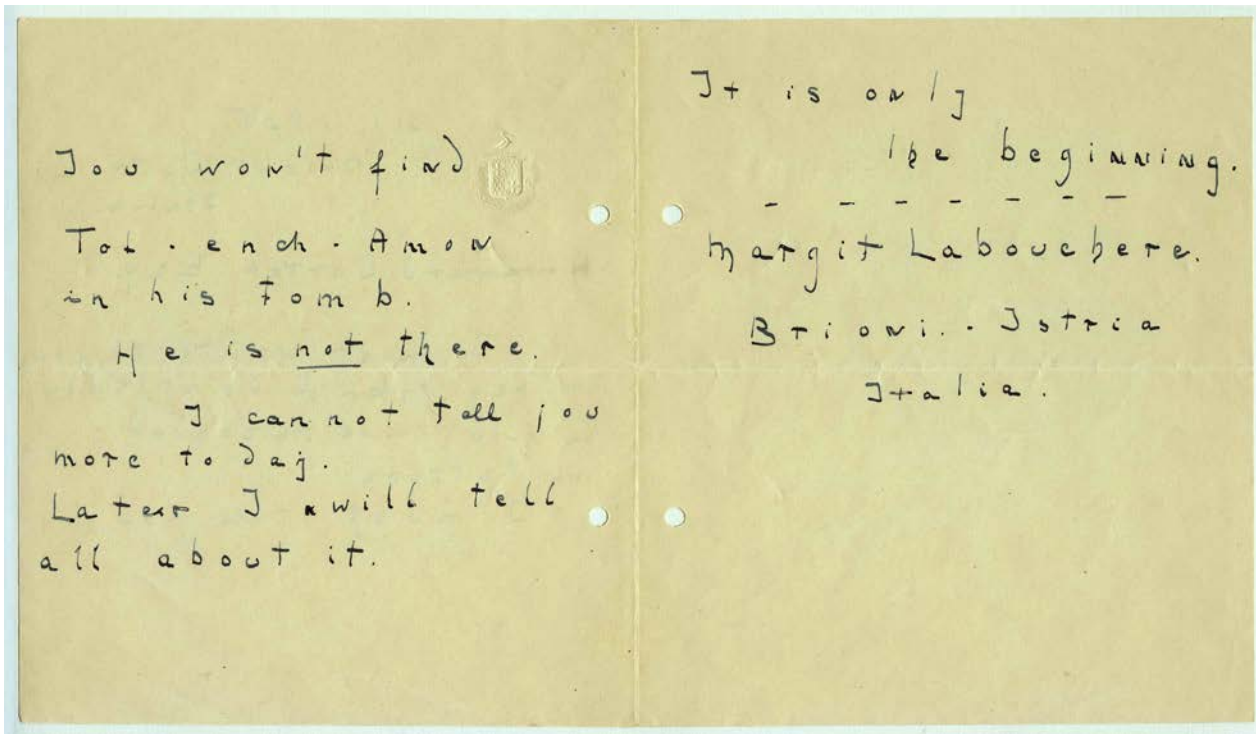 You won't find
Tot . ench . Amon
in his Tomb.
He is not there.
I cannot tell you
more to day.
Later I will tell
all about it.
It is only
the beginning.
- - - - - - -
Margit Labouchere.
Brioni. - Istria
Italia.